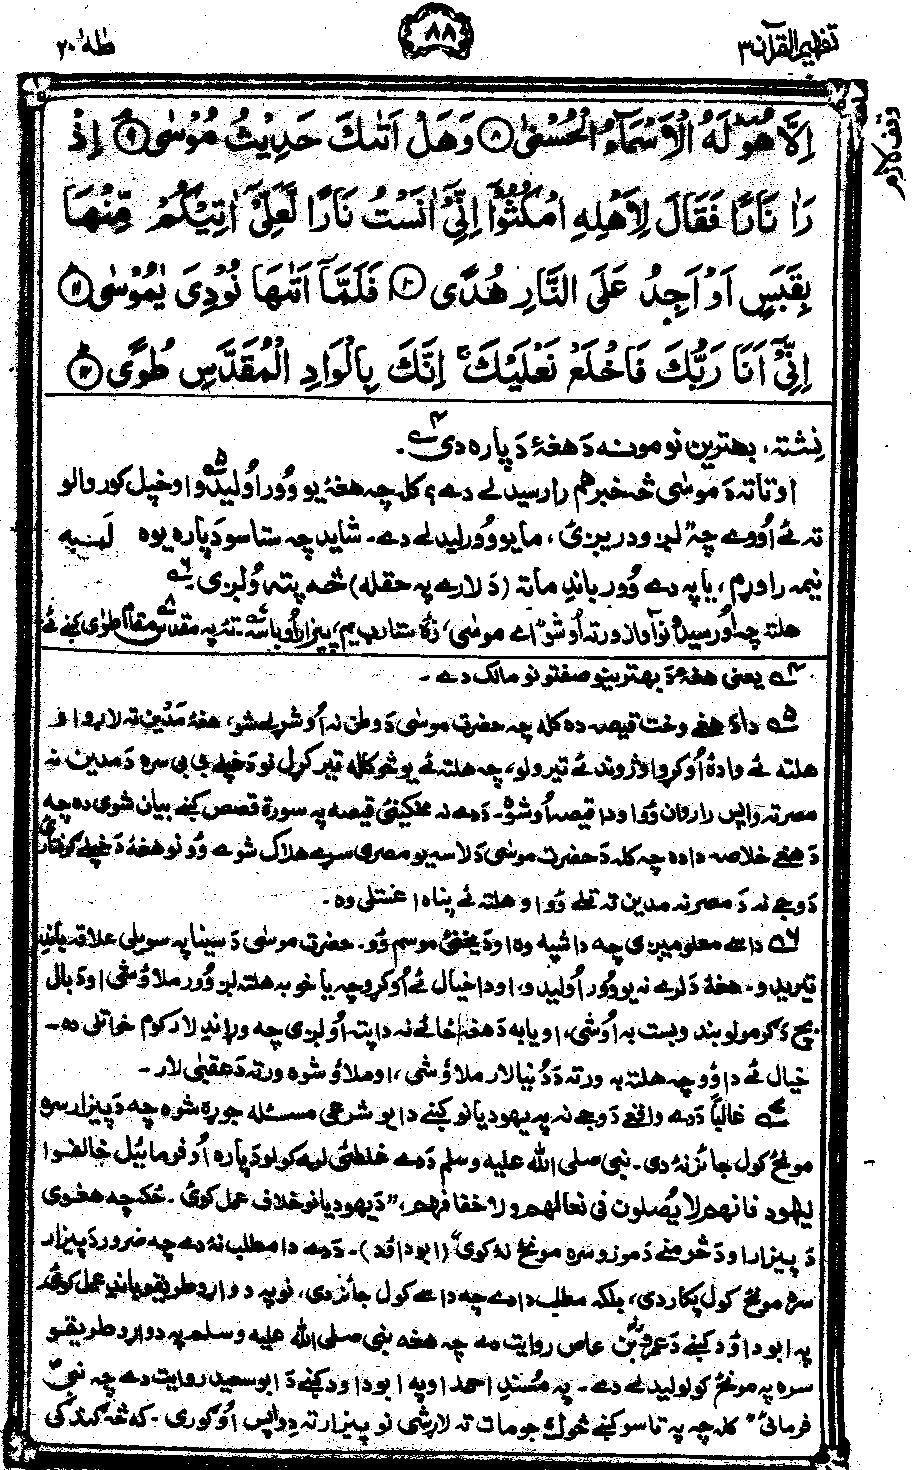 تفهيم القرآن ۳
۸۸
طٰهٰ ۲۰
وقف لازم
اِلَّا هُوَ ؕ لَهُ الْاَسْمَآءُ الْحُسْنٰى ﴿۸﴾ وَهَلْ اَتٰىكَ حَدِيْثُ مُوْسٰى ﴿۹﴾ اِذْ
رَاٰ نَارًا فَقَالَ لِاَهْلِهِ امْكُثُوْٓا اِنِّيْٓ اٰنَسْتُ نَارًا لَّعَلِّيْٓ اٰتِيْكُمْ مِّنْهَا
بِقَبَسٍ اَوْ اَجِدُ عَلَى النَّارِ هُدًى ﴿۱۰﴾ فَلَمَّآ اَتٰىهَا نُوْدِيَ يٰمُوْسٰى ﴿۱۱﴾
اِنِّيْٓ اَنَا رَبُّكَ فَاخْلَعْ نَعْلَيْكَ ۚ اِنَّكَ بِالْوَادِ الْمُقَدَّسِ طُوًى ﴿۱۲﴾
نِشته، بهترين نومونه دَ هغۀ دَ پاره دى ۴.
او تا ته دَ موسٰى څۀ خبر هم رارسيدلے دے؟ كله چه هغۀ يو وور اُوليدۀ ۵ او خپل كور والو
ته ئے اُووے چه "لږ ودريږئ، ما يو وور ليدلے دے. شايد چه ستاسو دَپاره يوه لَمبه
نيمه راوړم، يا په دے وور باندِ ماته (دَ لارے په حقله) څه پته ولږى ۶
هلته چه اُورسيدۀ نو آواز ورته اُوشو "اے موسٰى، زۀ ستا رب يم، پيزار اُوباسه ۷ تۀ په مقدس مقام طوٰى كښے ئے ۸
۴ يعنى هغه دَ بهترينو صفتو نو مالك دے.
۵ دا دَ هغے وخت قيصه ده كله چه حضرت موسٰى دَ وطن نه اُوشړلے شو، هغه مَدْيَن ته لاړو او
هلته ئے وادۀ اُوكړو او ژوند ئے تيرولو، چه هلته ئے يو څو كاله تير كړل نو دَ خپلے بى بى سره دَ مدين نه
مصر ته واپس راروان وُو او دا قيصه اُوشوه. دَدے نه مخكينئ قيصه په سورة قصص كښے بيان شوى ده چه
دَ هغے خلاصه داده چه كله دَ حضرت موسٰى دَ لاسه يو مصرى سړے هلاك شوے وُو نو هغه دَ خپلے ګرفتارئ
دَ وجے نه دَ مصر نه مدين ته تللے وُو او هلته ئے پناه اغستلى وه.
۶ داسے معلوميږى چه دا شپه وه او دَ يخنئ موسم وُو. حضرت موسٰى دَ سينا په سويلى علاقه باندِ
تيريدو. هغۀ دَ لرے نه يو وور اُوليدو، او دا خيال ئے اُوكړو چه يا خو به هلته لږ وور ملاؤ شى او دَ بال
بچ دَ ګرمولو بندوبست به اُوشى، او يا به دَ هغه ځائے نه دا پته اُولږى چه وړاندِ لار كوم خوا تلى ده.
خيال ئے دا وُو چه هلته به ورته دَ دُنيا لار ملاؤ شى، او ملاؤ شوه ورته دَ عقبٰى لار.
۷ غالباً دَدے واقعے دَ وجے نه په يهوديانو كښے دا يو شرعى مسئله جوړه شوه چه دَ پيزار سره
مونځ كول جائز نۀ دى. نبى صلى الله عليه وسلم دَدے غلطئ لرے كولو دَپاره اُوفرمائيل خالفوا
اليهود فانهم لا يُصلون فى نعالهم ولا خفافهم، "دَ يهوديانو خلاف عمل كوئ. ځكه چه هغوى
دَ پيزار او دَ څرمنے دَ موزو سره مونځ نۀ كوى" (ابوداؤد). دَدے دا مطلب نۀ دے چه ضرور دَ پيزار
سره مونځ كول پكار دى، بلكه مطلب دا دے چه داسے كول جائز دى، نو په دواړو طريقو باندِ عمل كوئ.
په ابوداؤد كښے دَ عمروؓ بن عاص روايت دے چه هغه نبى صلى الله عليه وسلم په دواړو طريقو
سره په مونځ كولو ليدلے دے. په مُسندِ احمد او په ابوداود كښے دَ ابوسعيد روايت دے چه نبىؐ
فرمائى "كله چه په تاسو كښے څوك جومات ته لاړ شى نو پيزار ته دِ واپس اُوګورى. كه څه ګندګى